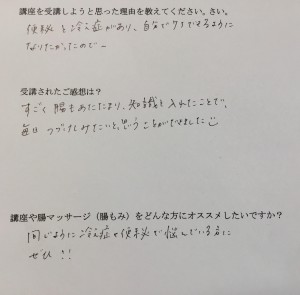 講座を受講しようと思った理由を教えてください。さい。
便秘と冷え症があり、自分でケアできるように
なりたかったので〜
受講されたご感想は？
すごく腸もあたたまり、知識も入れたことで、
毎日つづけてみたいと、思うことができました
講座や腸マッサージ（腸もみ）をどんな方にオススメしたいですか？
同じように冷え症や便秘で悩んでいる方に
ぜひ!!